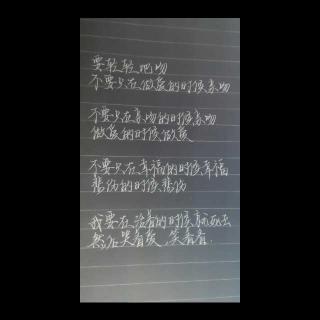 要轻轻吧吻
不要只在做爱的时候亲吻
不要只在亲吻的时候亲吻
做爱的时候做爱
不要只在幸福的时候幸福
悲伤的时候悲伤
我要在活着的时候就死去
然后哭着爱、笑着看.